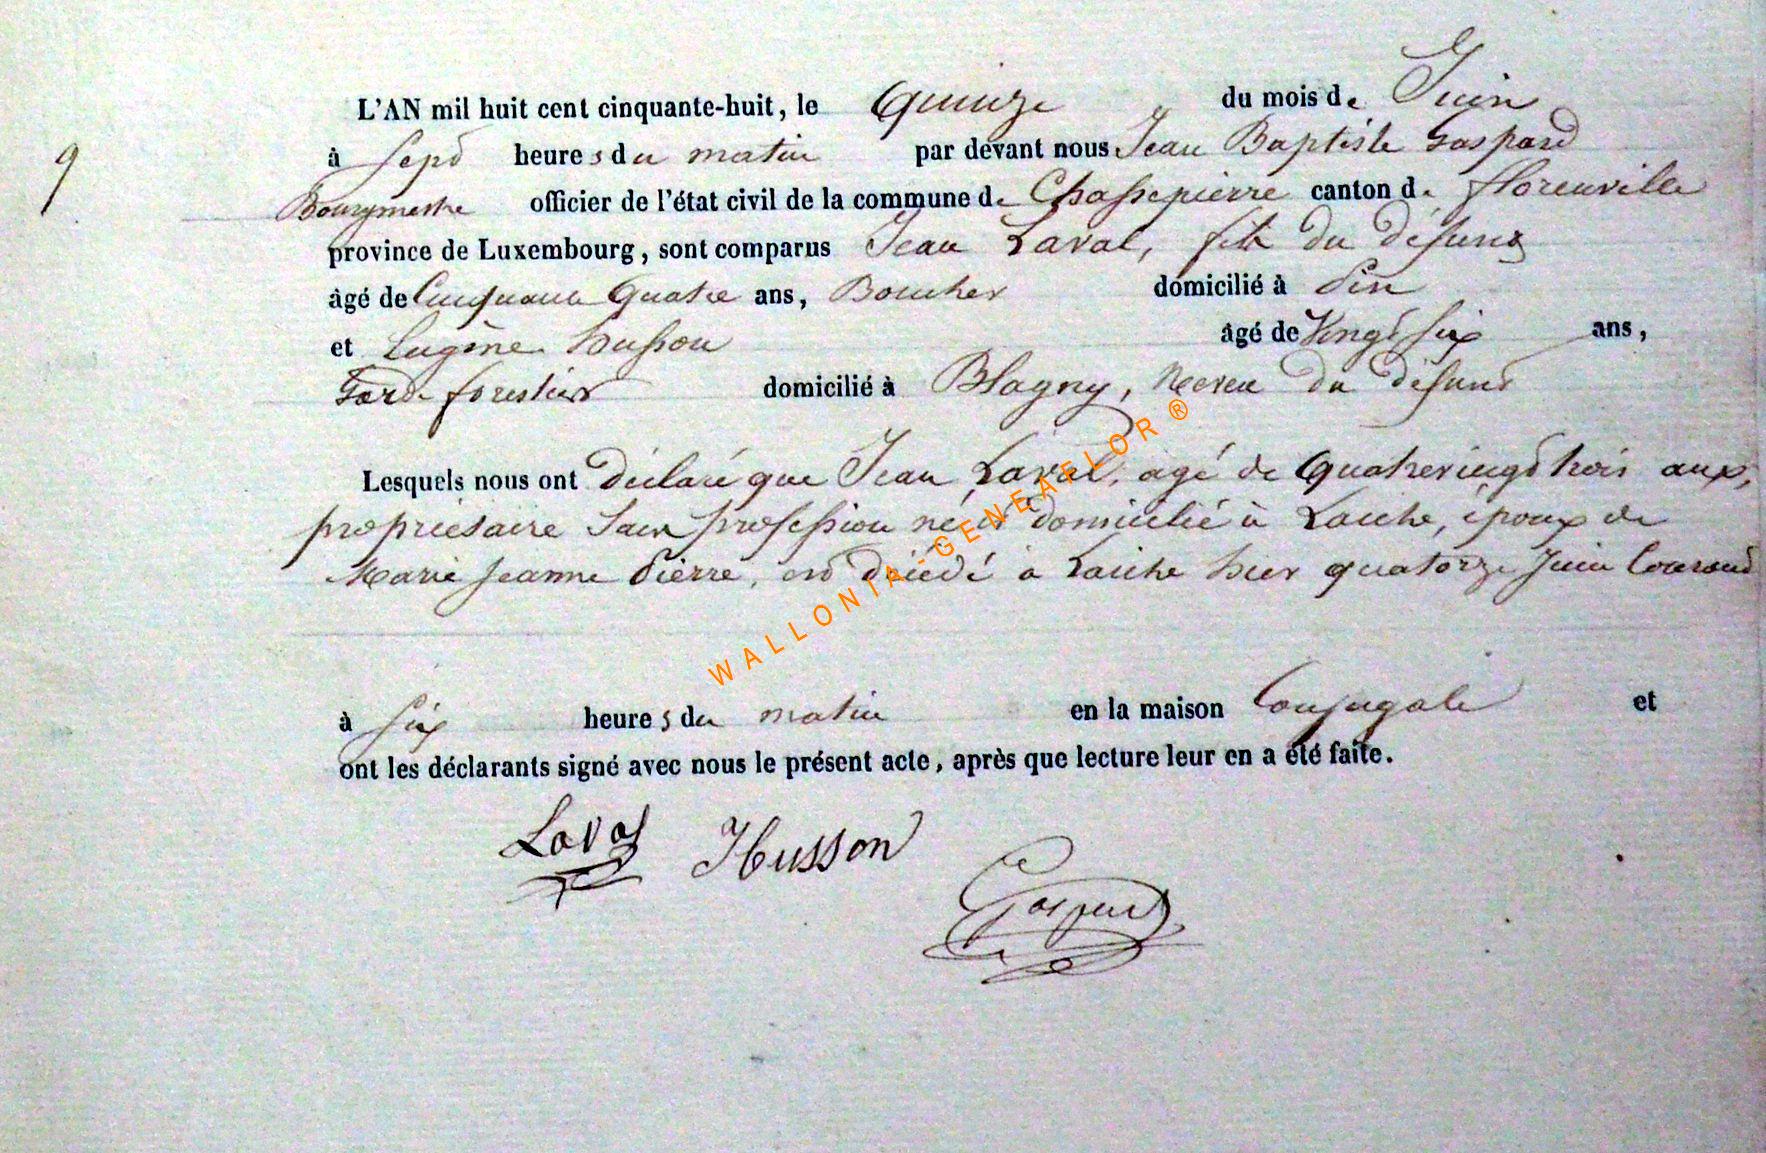 L'AN mil huit cent cinquante-huit, le Quinze du mois de Juin
9
à Sept heures du matin par devant nous Jean Baptiste Gaspard
Bourgmestre officier de l'état civil de la commune de Chassepierre canton de florenville
province de Luxembourg, sont comparus Jean Laval, fils du défunt
âgé de Cinquante Quatre ans, Boucher domicilié à Pin
et Eugène husson âgé de Vingt six ans,
Garde forestier domicilié à Blagny, Neveu du défunt
Lesquels nous ont déclaré que Jean Laval, agé de Quatrevingt trois ans,
propriétaire sans profession né et domicilié à Laiche, époux de
Marie jeanne Pierre, est décédé à Laiche hier quatorze Juin Courant
à six heures du matin en la maison Conjugale et
ont les déclarants signé avec nous le présent acte, après que lecture leur en a été faite.
Laval Husson
Gaspard
WALLONIA-GENEAFLOR®